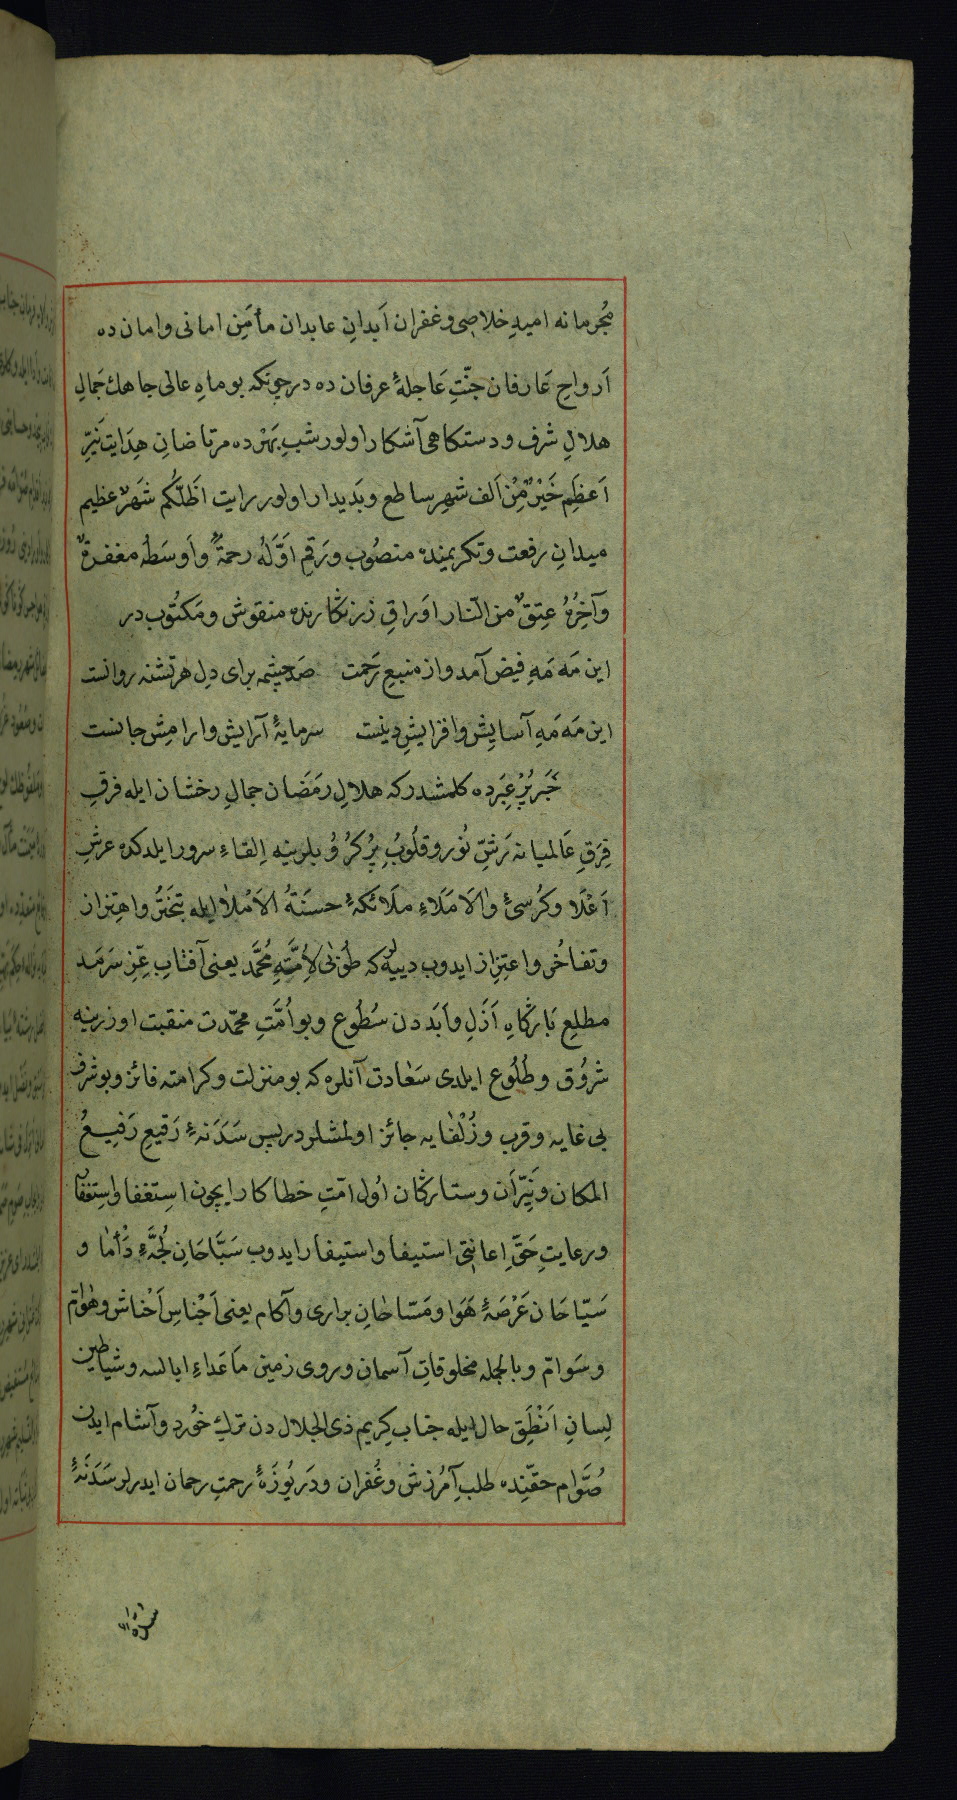 مُجرمانه اميدِ خلاصى وغفران اَبدانِ عابدان مأمَنِ امانى وامان ده
اَرواحِ عَارفان جنّتِ عَاجلهٔ عرفان ده در چونكه بو ماهِ عالى جاهك جَمالِ
هلالِ شرف ودستكاهى آشكارا اولور شبِ بَهرْده مرتاضانِ هِدَايت نَيِّرِ
اَعظمِ خَيْرٌ مِنْ اَلف شهرِ ساطع وبَديدار اولور رايت اَظَلَّكُم شَهرٌ عظيم
ميدانِ رفعت وتكريمنده منصُوب ورَقمِ اَوَّلُهُ رحمةٌ واَوسَطُه مغفرةٌ
وآخِرُهُ عِتقٌ من النّار اوراقِ زرنكارنده منقوش ومَكتُوب در
اين مَه مَهِ فيض آمد واز منبعِ رَحمت صَد چشمه براى دلِ هر تشنه روانست
اين مَه مَهِ آسايِش وافزايشِ دينست سرمايهٔ آرايش وارامِش جانست
خَبَرِ پُرْ عِبَرده كلمشدر كه هلالِ رمَضَان جمالِ رخشان ايله فرقِ
فِرَقِ عَالميانه رَشِّ نُور وقلُوبِ پُر كرُوبلرينه اِلقاءِ سرور ايلدكده عرشِ
اَعْلَا وكُرسىِٔ والَا مَلَاءِ ملَائكهٔ حسنَةُ الاَمْلا ايله تبَختُر واهتِزاز
وتفاخُر واعتِزاز ايدوب دييه لر كه طُوبَى لِاُمَّةِ مُحمَّد يعنى آفتابِ عِزِّ سَرمَد
مطلعِ بَاركاهِ اَزَل واَبَددن سُطُوع وبو اُمَّتِ محمّدت منقبت اوزرينه
شرُوُق وطُلُوع ايلدى سَعَادت آنلره كه بو منزلت وكرامته فائز وبو شرفِ
بى غايه وقرب وزُلْفَايه جائز اولمشلردر پس سَدَنهٔ رَقيعِ رَفيعُ
المكان ونَيِّرَان وستاركان اوُل امّتِ خطاكار ايچون استِغفا واستِغفار
ورعايتِ حَقّ اِعانتى استيفا واستيفار ايدوب سَبَّاحَانِ لُجَّهٔ دَأمَا و
سَيّاحَان عَرْصَهٔ هَوَا ومَسّاحَانِ برارى وآكام يعنى اَجْناسِ اَخْناش وهَوَامّ
وسَوامّ وبالجمله مخلوقاتِ آسمان وروى زمين مَاعَداءِ ابالسه وشياطين
لِسانِ اَنْطَقِ حال ايله جنابِ كريم ذى الجلال دن تركِ خوُرد وآشام ايدن
صُوَّام حقّنده طلبِ آمُرزش وغُفران ودَريُوزَهٔ رحمتِ رحمان ايدرلر سَدَنَهٔ